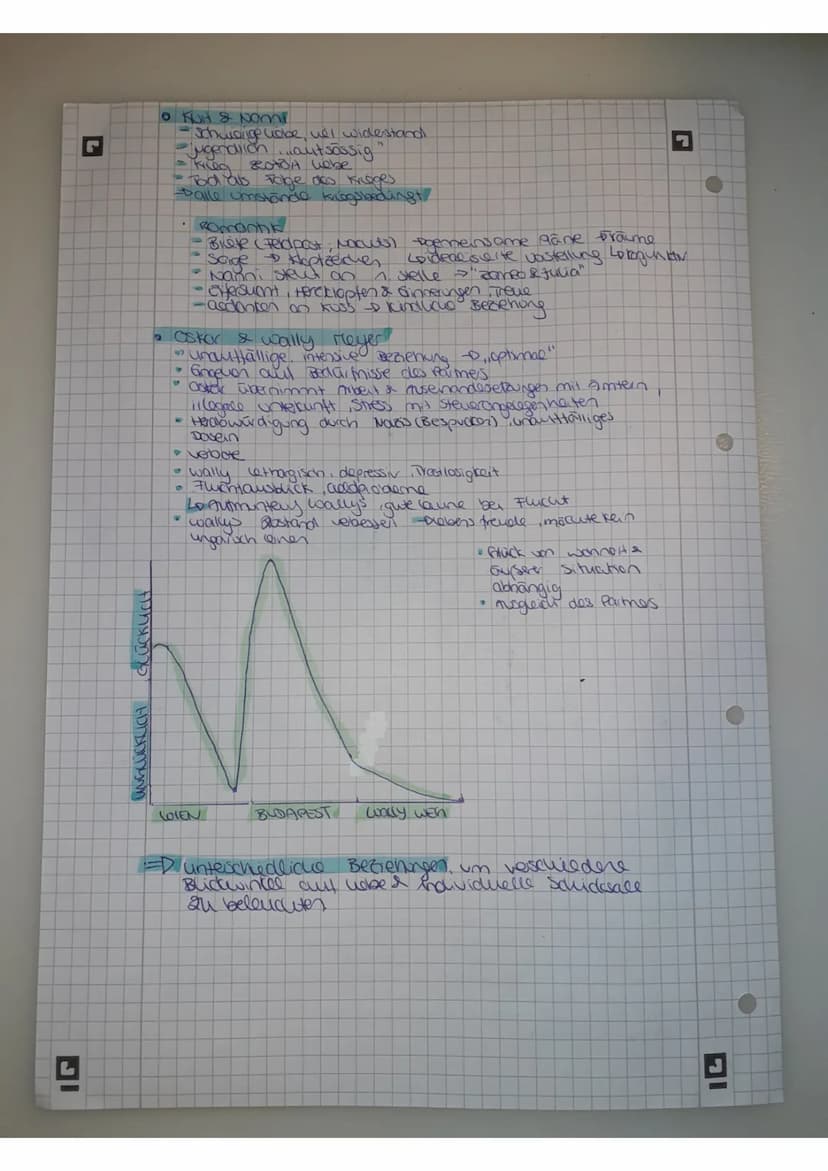 • Kurt & Nanni
- schwierige Liebe, viel Widerstand
- jugendlich „aufsässig"
- Krieg zerstört Liebe
- Tod als Folge des Krieges
→ alle Umstände kriegsbedingt
• Romantik
- Briefe (Feldpost, Nachts) → gemeinsame Pläne → Träume
- Sorge → Klopfzeichen
- Nanni steht an 1. Stelle → "Romeo & Julia"
- Eifersucht, Herzklopfen & Erinnerungen, Treue
- Gedanken an Kuss → kindliche Beziehung
• Oskar & Wally Meyer
• unauffällige, intensive Beziehung → „optimal"
• Eingehen auf Bedürfnisse des Partners
• Oskar übernimmt Arbeit & Auseinandersetzungen mit Ämtern,
illegale Unterkunft, Stress mit Steuerangelegenheiten
• Herabwürdigung durch Nazis (Bespucken), unauffälliges
Dasein
• Verbote
• Wally lethargisch, depressiv, Trostlosigkeit
• Fluchtausblick,
Wallys, gute Laune bei Flucht
• Wallys Zustand verbessert → Lebensfreude, möchte kein
ungarisch lernen
• Glück von Wohnort &
äußerer Situation
abhängig
• Ausgleich des Partners
GLÜCKLICH
UNGLÜCKLICH
WIEN BUDAPEST WALLY WEH
⇒ unterschiedliche Beziehungen, um verschiedene
Blickwinkel auf Liebe & individuelle Schicksale
zu beleuchten